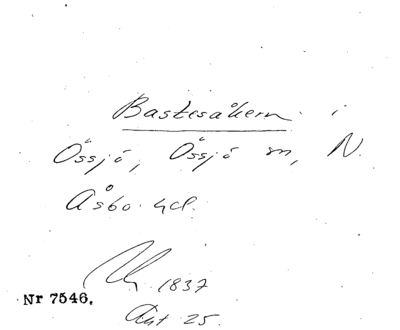 Bastesåkern i
Össjö, Össjö sn, N.
Åsbo hd.
1837
Nr 7546.
Akt 25.